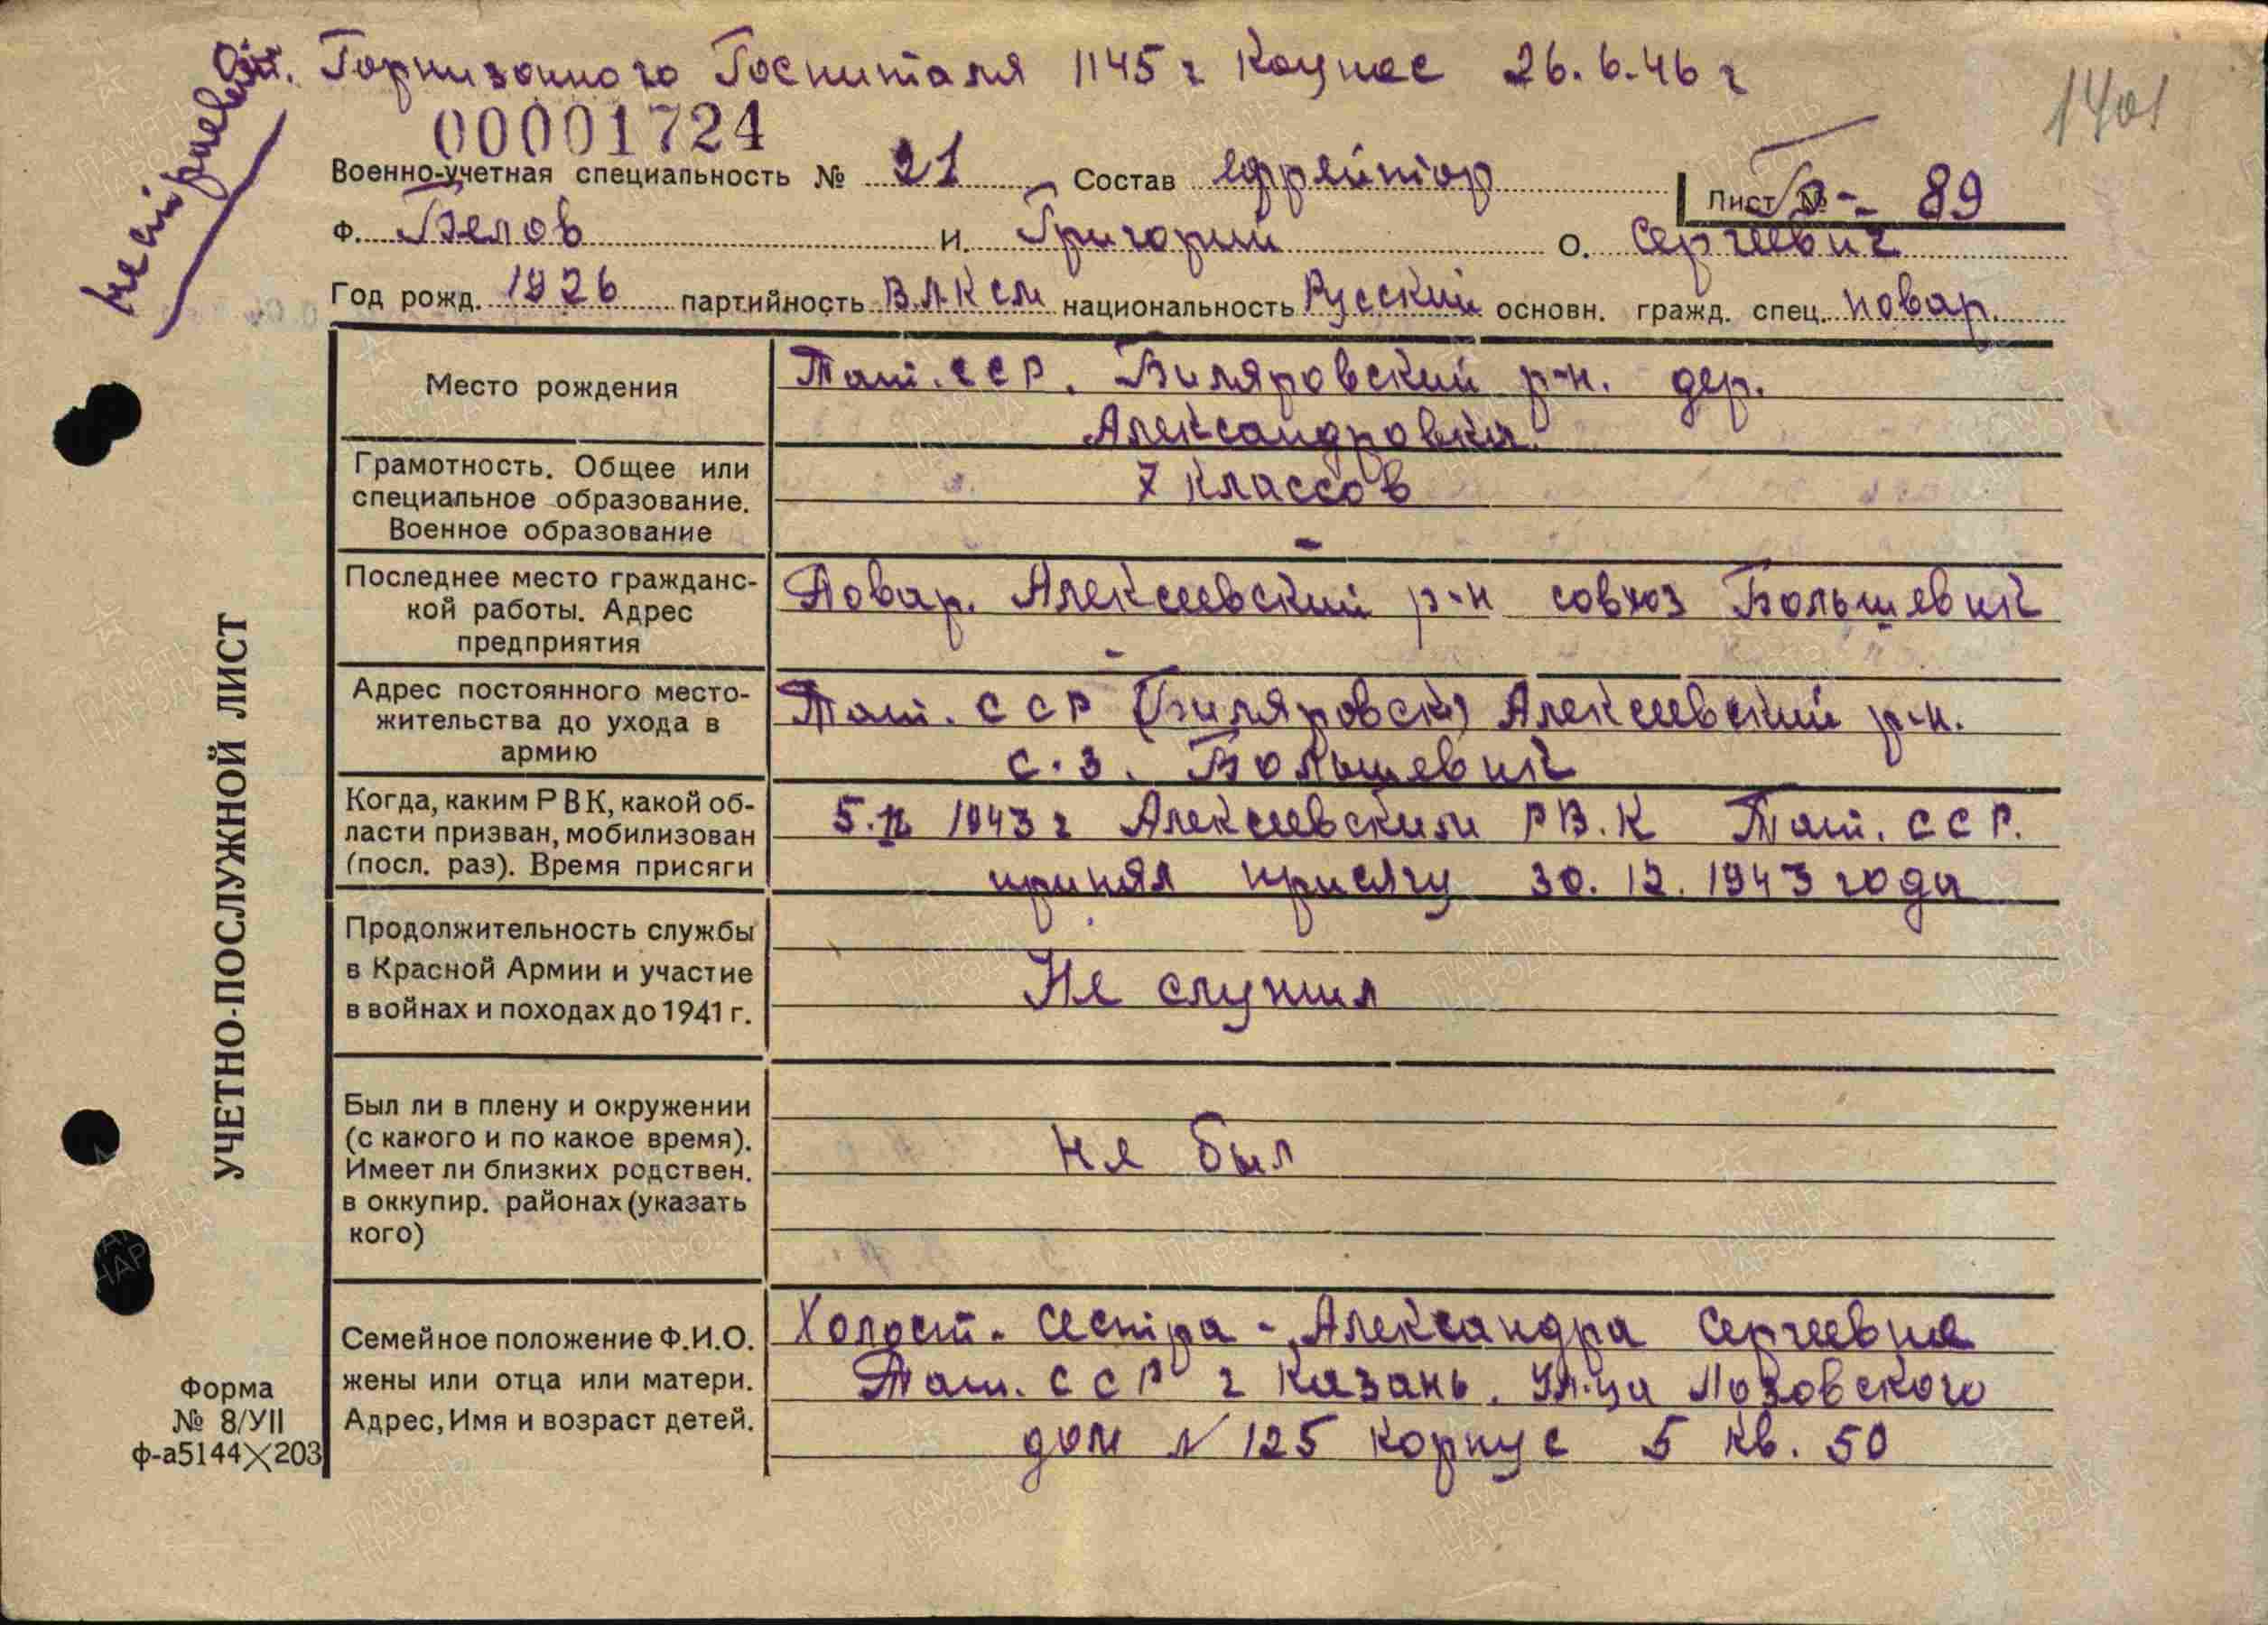 Гарнизонного Госпиталя 1145 г Каунас 26.6.46 г
1401
00001724
Военно-учетная специальность № 21 Состав ефрейтор
Лист № Б-- 89
Ф. Белов И. Григорий О. Сергеевич
Год рожд. 1926 партийность ВЛКСМ национальность Русский основн. гражд. спец. повар.
Место рождения
Тат. ССР. Биляровский р-н. дер.
Александровка.
Грамотность. Общее или
специальное образование.
Военное образование
7 классов
-
Последнее место гражданс-
кой работы. Адрес
предприятия
Повар. Алексеевский р-н совхоз Большевик
-
Адрес постоянного место-
жительства до ухода в
армию
Тат. ССР (Биляровск) Алексеевский р-н.
с.з. Большевик
Когда, каким РВК, какой об-
ласти призван, мобилизован
(посл. раз). Время присяги
5. 1943 г Алексеевским РВ.К Тат. ССР.
принял присягу 30.12.1943 года
Продолжительность службы
в Красной Армии и участие
в войнах и походах до 1941 г.
Не служил
Был ли в плену и окружении
(с какого и по какое время).
Имеет ли близких родствен.
в оккупир. районах (указать
кого)
не был
Семейное положение Ф.И.О.
жены или отца или матери.
Адрес, Имя и возраст детей.
Холост. Сестра - Александра Сергеевна
Тат. ССР г Казань. Ул-ца Лозовского
дом N 125 корпус 5 кв. 50
УЧЕТНО-ПОСЛУЖНОЙ ЛИСТ
Форма
№ 8/УII
ф-а5144×203
ПАМЯТЬ НАРОДА